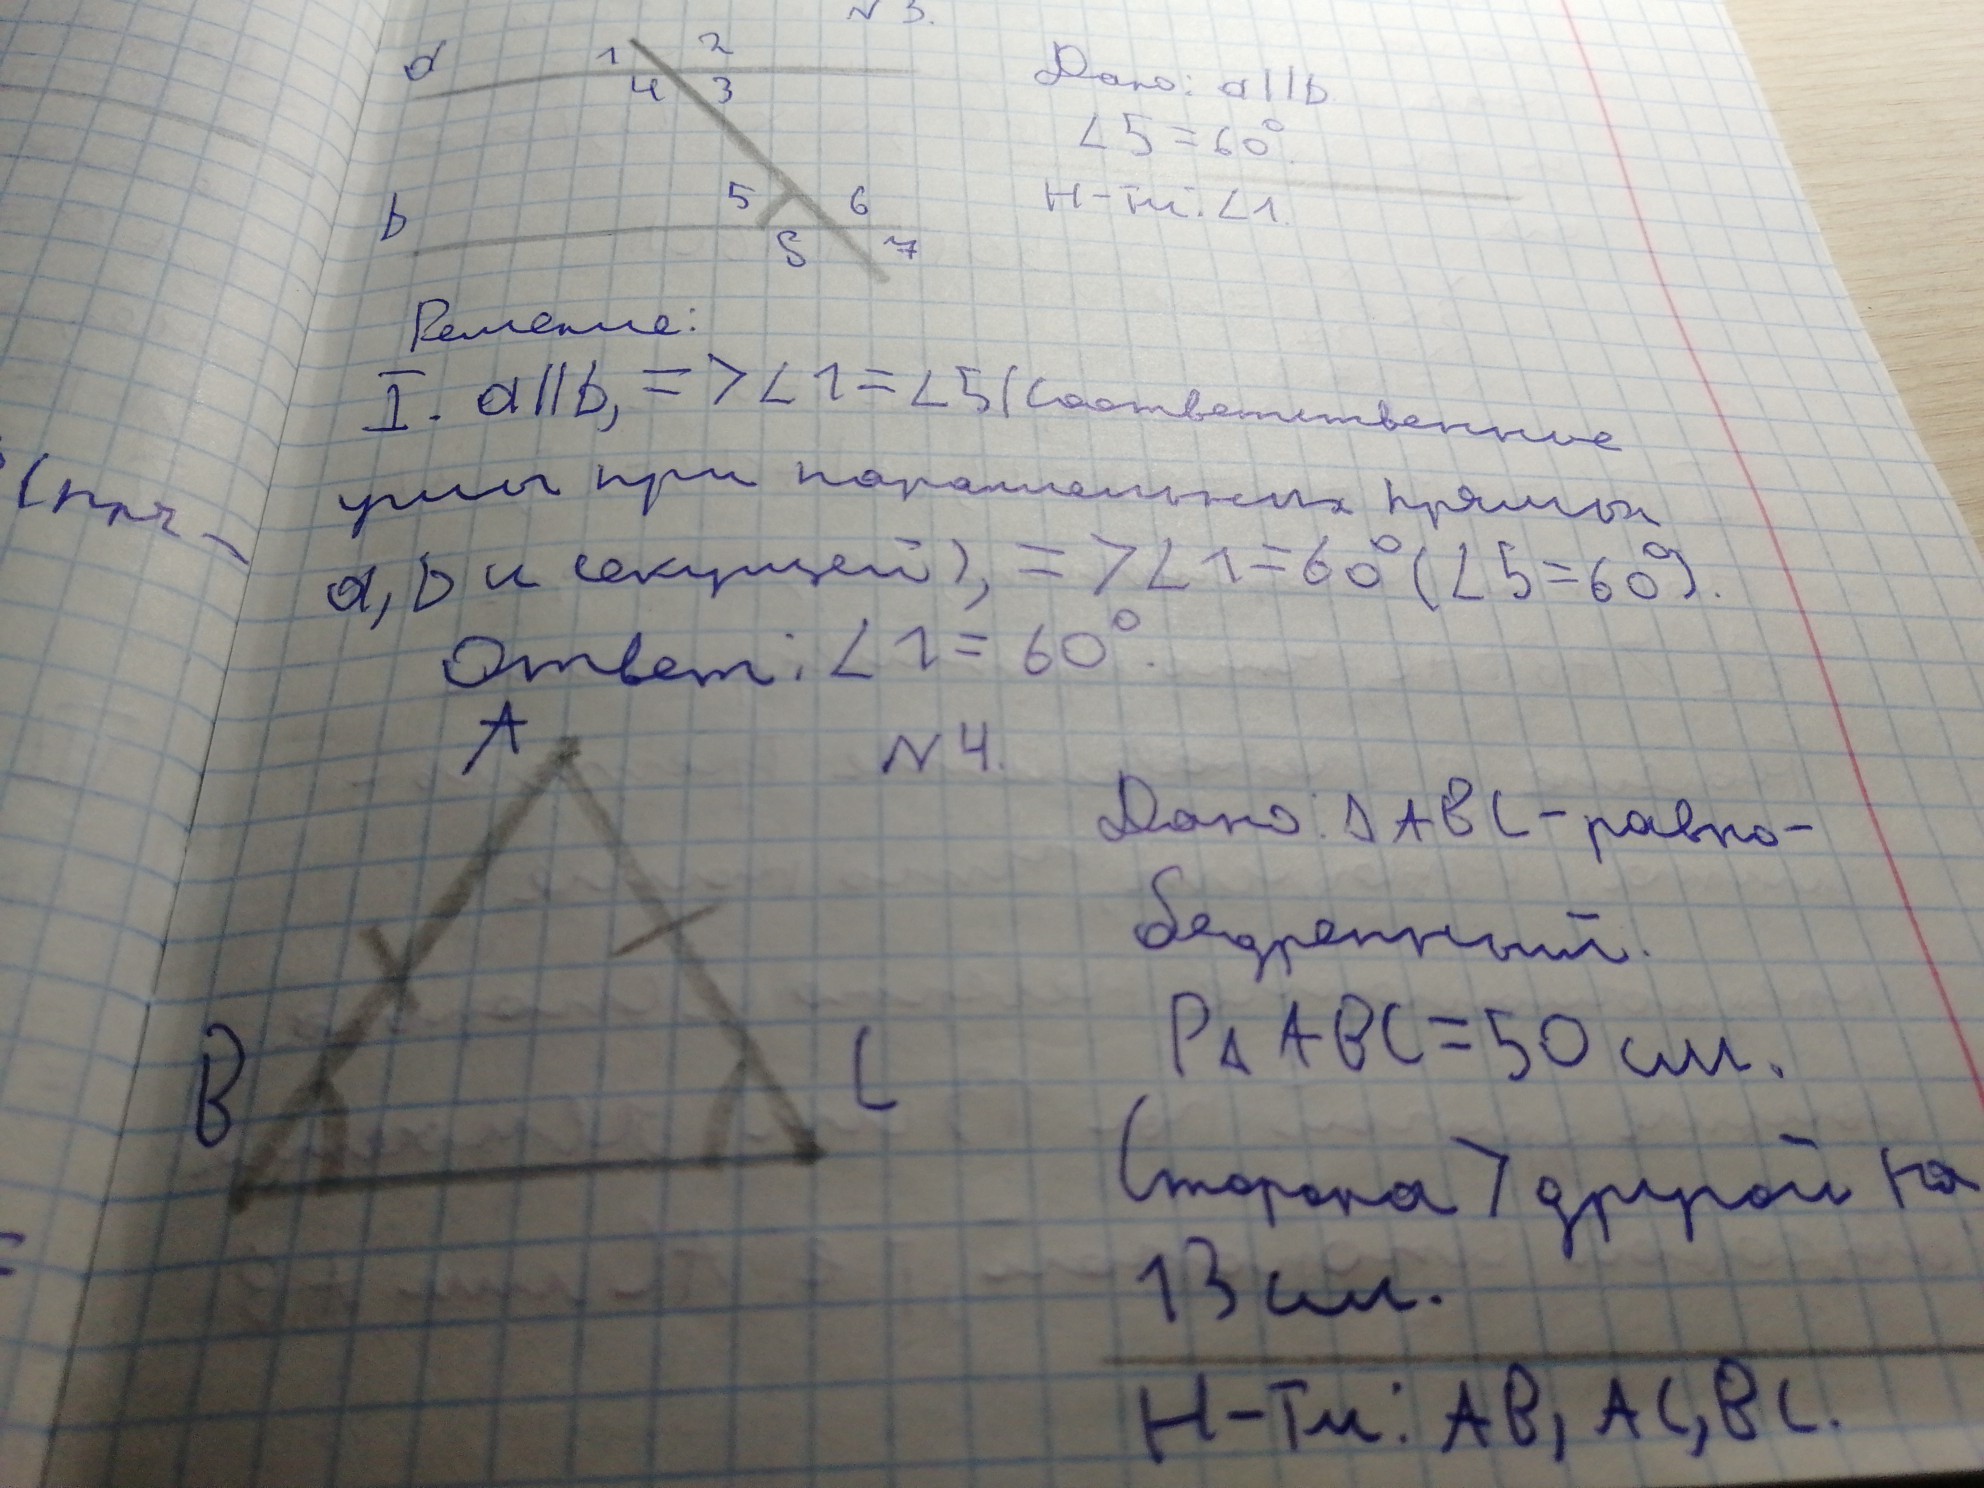 N 3.
a 1 2
4 3
Дано: a||b
∠5=60°.
b 5 6
8 7
Н-ти: ∠1.
Решение:
I. a||b, => ∠1=∠5 (Соответственные
углы при паралельных прямых
a, b и секущей), => ∠1=60° (∠5=60°).
Ответ: ∠1= 60°.
(при-
A
N 4.
Дано: Δ ABC - равно-
бедренный.
B C
PΔ ABC=50 см.
Сторона > другой на
13 см.
Н-ти: AB, AC, BC.
=